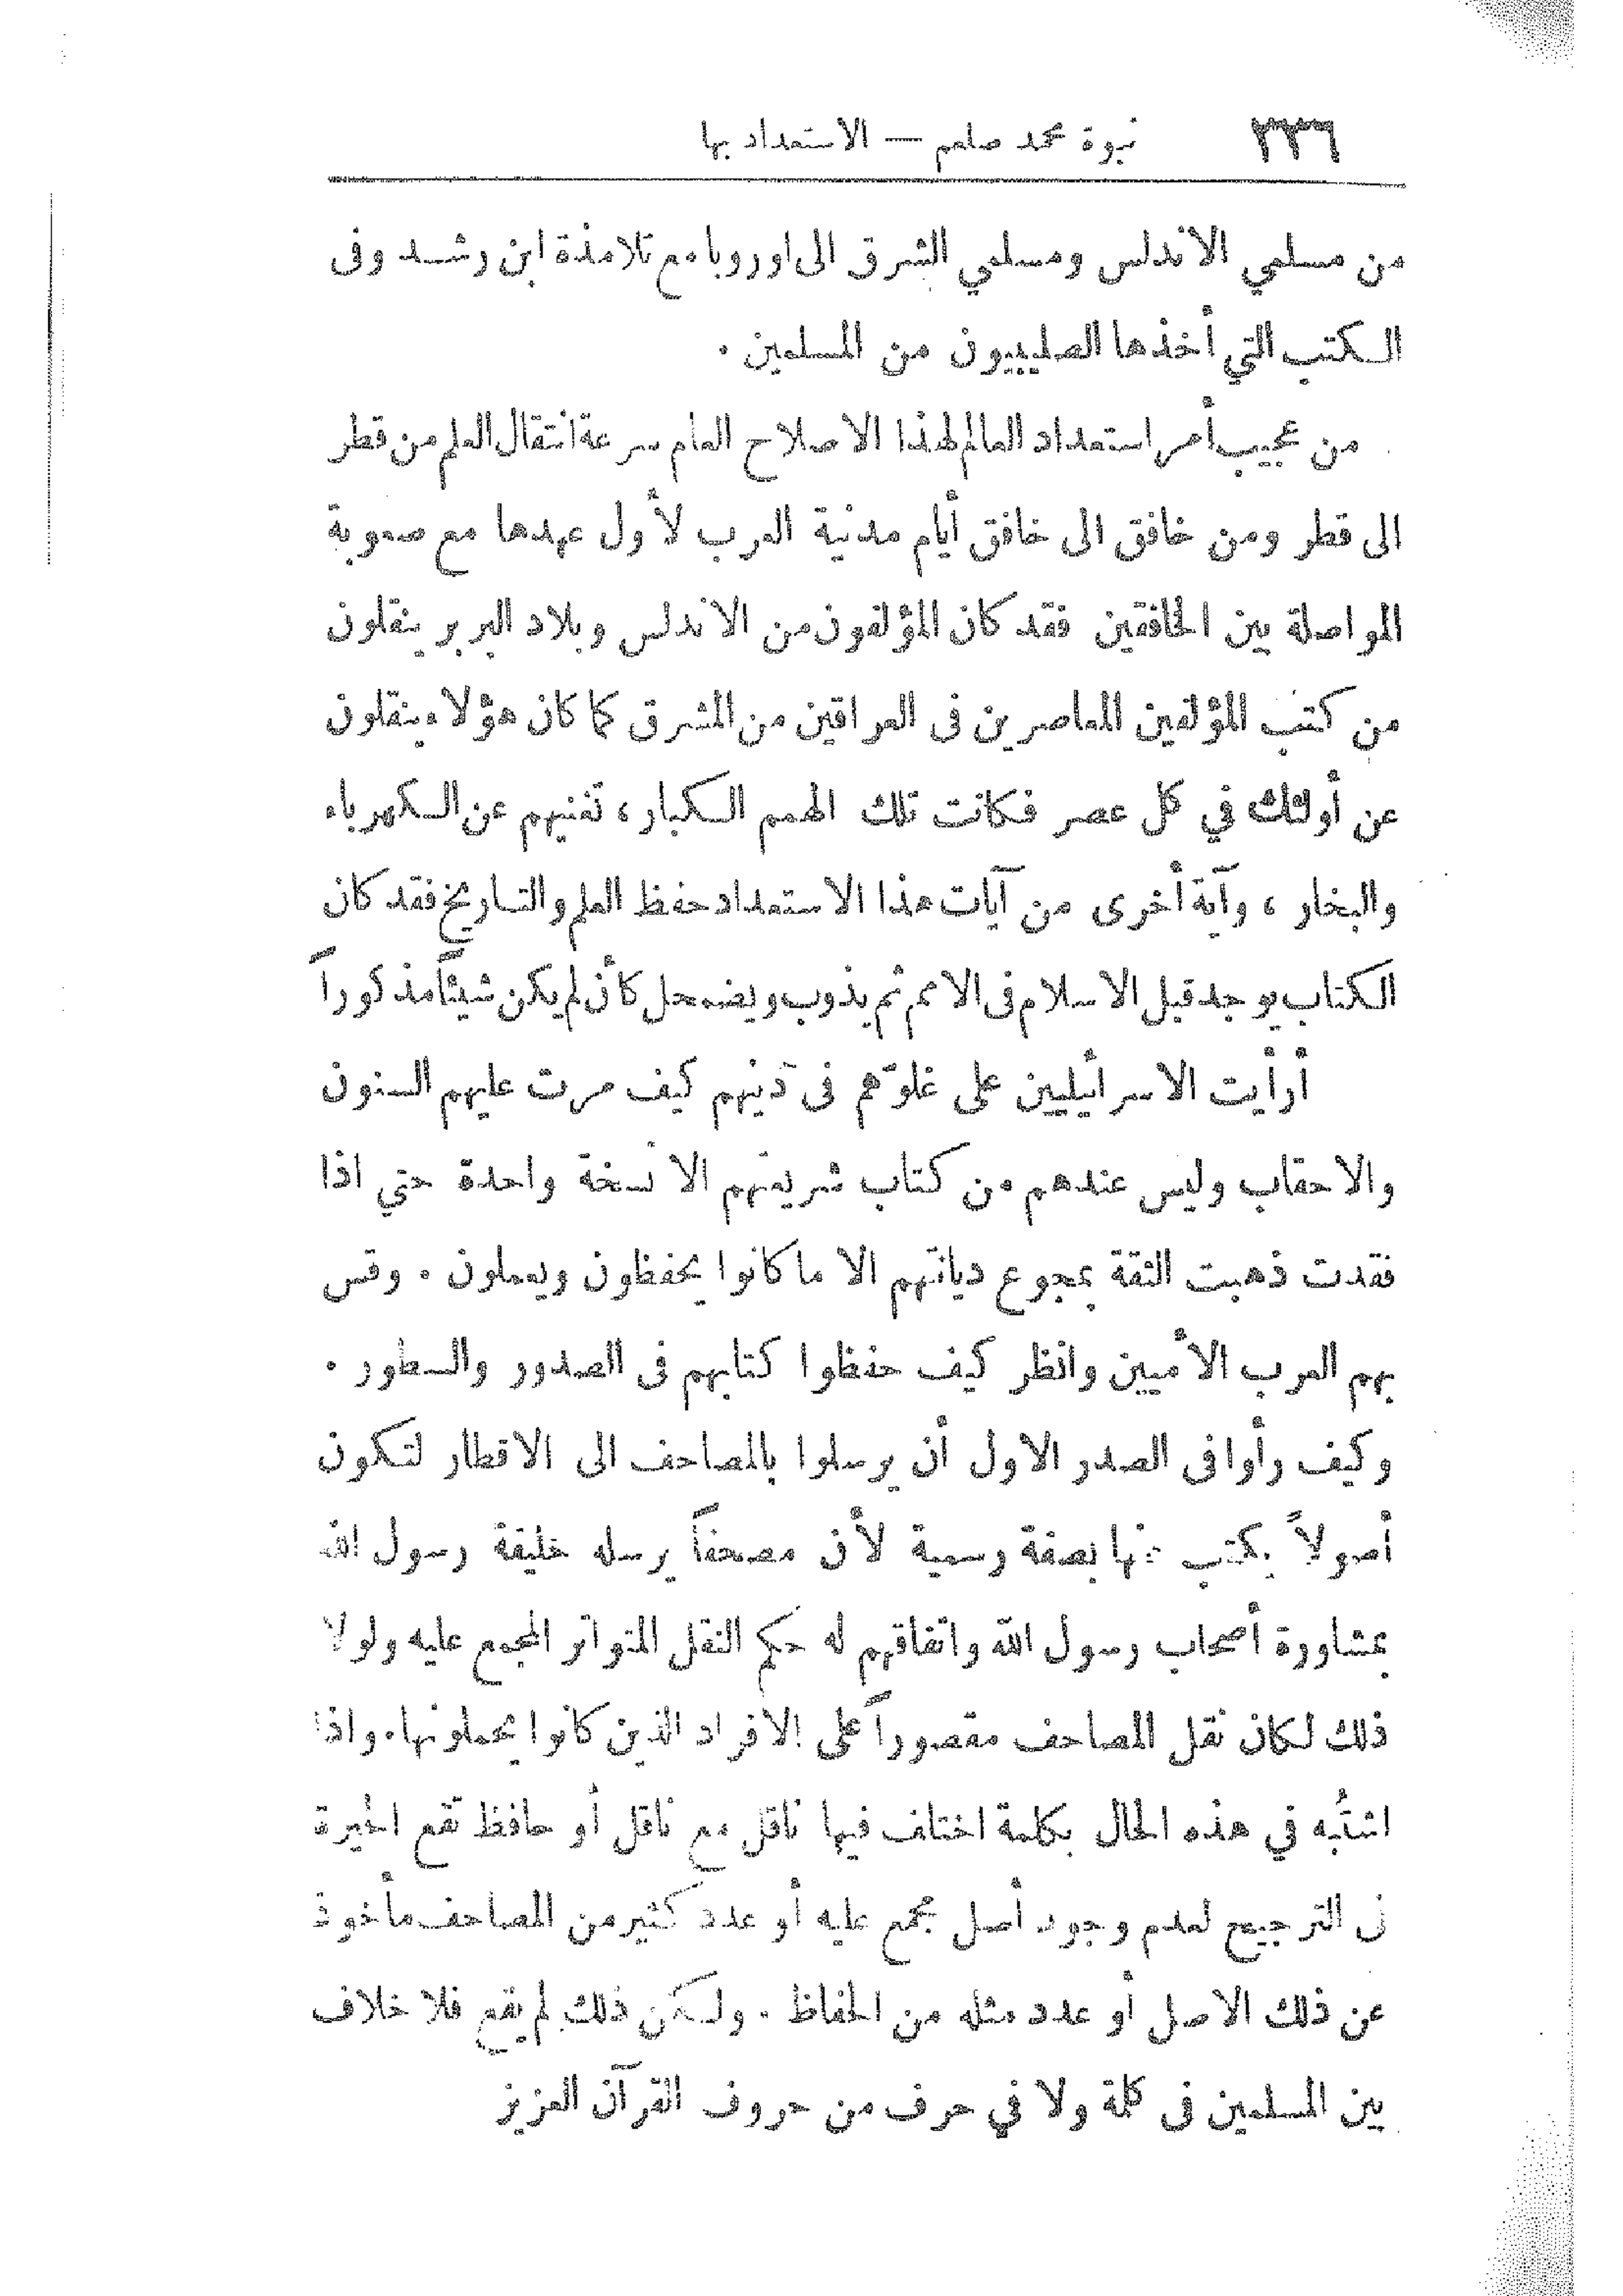 ٣٣٦ نبوة محمد صلعم — الاستعداد بها
من مسلمي الاندلس ومسلمي الشرق الى اوروبا مع تلامذة ابن رشد وفى
الكتب التي أخذها الصليبيون من المسلمين .
من عجيب أمر استعداد العالم لهذا الاصلاح العام سرعة انتقال العلم من قطر
الى قطر ومن خافق الى خافق أيام مدنية العرب لأول عهدها مع صعوبة
المواصلة بين الخافقين فقد كان المؤلفون من الاندلس وبلاد البربر ينقلون
من كتب المؤلفين المعاصرين فى العراقين من المشرق كما كان هؤلاء ينقلون
عن أولئك في كل عصر فكانت تلك الهمم الكبار ، تغنيهم عن الكهرباء
والبخار ، وآية أخرى من آيات هذا الاستعداد حفظ العلم والتاريخ فقد كان
الكتاب يوجد قبل الاسلام فى الامم ثم يذوب ويضمحل كأن لم يكن شيئاً مذكوراً
أرأيت الاسرائيليين على غلوّهم فى دينهم كيف مرت عليهم السنون
والاحقاب وليس عندهم من كتاب شريعتهم الا نسخة واحدة حتي اذا
فقدت ذهبت الثقة بمجموع ديانتهم الا ما كانوا يحفظون ويعملون . وقس
بهم العرب الأميين وانظر كيف حفظوا كتابهم فى الصدور والسطور .
وكيف رأوا فى الصدر الاول أن يرسلوا بالمصاحف الى الاقطار لتكون
أصولاً يكتب عنها بصفة رسمية لأن مصحفاً يرسله خليفة رسول الله
بمشاورة أصحاب رسول الله واتفاقهم له حكم النقل المتواتر المجمع عليه ولولا
ذلك لكان نقل المصاحف مقصوراً على الافراد الذين كانوا يحملونها . واذا
اشتُبه في هذه الحال بكلمة اختلف فيها ناقل مع ناقل أو حافظ تقع الحيرة
فى الترجيح لعدم وجود أصل مجمع عليه أو عدد كثير من المصاحف مأخوذ
عن ذلك الاصل أو عدد مثله من الحفاظ . ولكن ذلك لم يقع فلا خلاف
بين المسلمين فى كلمة ولا في حرف من حروف القرآن العزيز